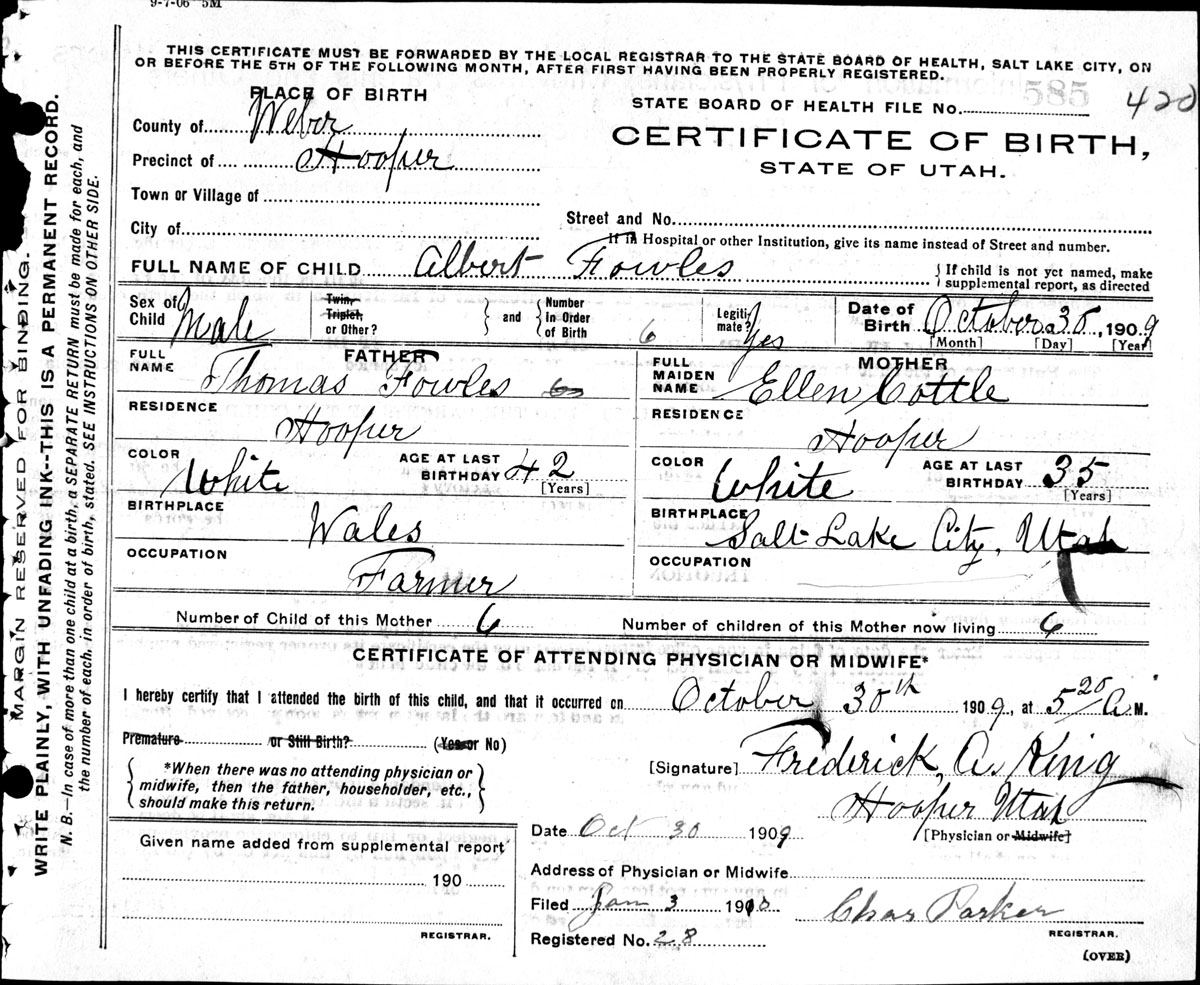 9-7-06 5M
THIS CERTIFICATE MUST BE FORWARDED BY THE LOCAL REGISTRAR TO THE STATE BOARD OF HEALTH, SALT LAKE CITY, ON
OR BEFORE THE 5TH OF THE FOLLOWING MONTH, AFTER FIRST HAVING BEEN PROPERLY REGISTERED.
PLACE OF BIRTH
STATE BOARD OF HEALTH FILE No. 585 420
County of Weber
CERTIFICATE OF BIRTH,
Precinct of Hooper
STATE OF UTAH.
Town or Village of
Street and No.
City of
If in Hospital or other Institution, give its name instead of Street and number.
FULL NAME OF CHILD Albert Fowles
If child is not yet named, make
supplemental report, as directed
Sex of Child Male
Twin, Triplet, or Other?
and
Number In Order of Birth 6
Legitimate? Yes
Date of Birth October 30, 1909
[Month] [Day] [Year]
FATHER
FULL NAME Thomas Fowles
RESIDENCE
Hooper
COLOR White
AGE AT LAST BIRTHDAY 42
[Years]
BIRTHPLACE
Wales
OCCUPATION
Farmer
MOTHER
FULL MAIDEN NAME Ellen Cottle
RESIDENCE
Hooper
COLOR White
AGE AT LAST BIRTHDAY 35
[Years]
BIRTHPLACE
Salt Lake City, Utah
OCCUPATION
Number of Child of this Mother 6
Number of children of this Mother now living 6
CERTIFICATE OF ATTENDING PHYSICIAN OR MIDWIFE*
I hereby certify that I attended the birth of this child, and that it occurred on October 30th 1909, at 5 20 A M.
Premature or Still Birth? (Yes or No)
*When there was no attending physician or
midwife, then the father, householder, etc.,
should make this return.
[Signature] Frederick, A. King
Hooper Utah
Date Oct 30 1909
[Physician or Midwife]
Given name added from supplemental report
190
REGISTRAR.
Address of Physician or Midwife
Filed Jan 3 1910
Chas Parker
REGISTRAR.
Registered No. 28
(OVER)
MARGIN RESERVED FOR BINDING.
WRITE PLAINLY, WITH UNFADING INK--THIS IS A PERMANENT RECORD.
N. B.—In case of more than one child at a birth, a SEPARATE RETURN must be made for each, and
the number of each, in order of birth, stated. SEE INSTRUCTIONS ON OTHER SIDE.